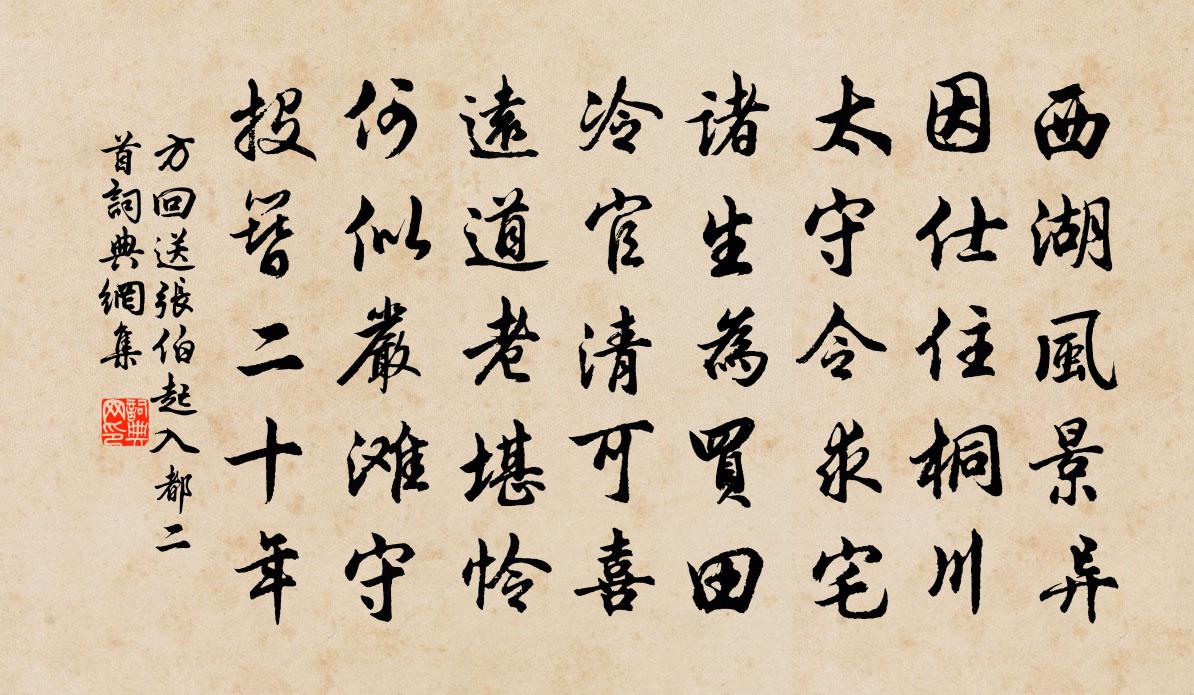 西湖風景异
因仕住桐川
太守令求宅
諸生為買田
冷官清可喜
遠道老堪怜
何似嚴滩守
投簪二十年
方回送張伯起入都二
首詞典網集
詞典
网印